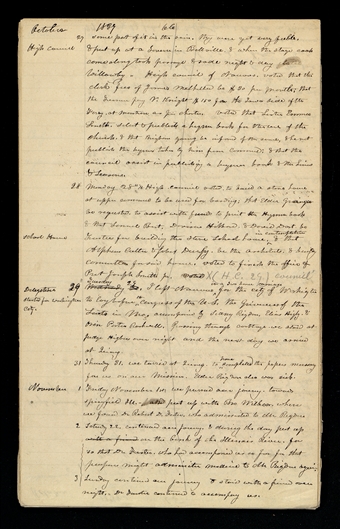 October 1839
High council 27 some part of it in this ruin. They were yet very feeble,
& put up at a Tavern in Bellville, & when the stage coach
came along took passage & rode night & day to
Willoughby. High council of Nauvoo voted that the
clerk fees of James Mulholland be $ 30 per month; that
the Treasurer pay V. Knight $150 for the Iowa side of the
River, at
Smith select & publish a hymn book for the use of the
church, & that Brigham Young be informed of the same, & he not
publish the hymns taken by him from Commerce; & that the
council assist in publishing a hymn book & the Times
& Seasons.
28 Monday 28th High council voted to build a stone house
at upper commerce to be used for boarding; that Elder Granger
be requested to assist with funds to print the Hymn book
& that Samuel Bent, Davison Hibbard, & David Dort be
School House Trustees for building the stone school house, & that
Alpheus Cutler & Jabez Durfey be the architects & building
committee for said house. voted to finish the office of
Prest Joseph Smith jr. (H. C. 29) council
Delegates 29 Tuesday 29, I left Nauvoo for the city of Washington
started for Washington to lay before the Congress of the U. S. the Grievances of the
City. Saints in Mo, accompanied by Sidney Rigdon, Elias Higbee &
Orin Porter Rockwell. Passing through Carthage we staid at
Judge Higbees over night and the next day we arrived
at Quincy.
31 Thursday 31. we tarried at Quincy, to complete the papers necessary
for us on our Mission. Elder Rigdon also was sick.
November 1 Friday November 1st we pursued our journey toward
Springfield Ill. put up with Bro Wilber, where
we found Dr Robert D. Foster who administered to Mr Rigdon
2 Saturday 2d continued our journey, & during the day put up
with a friend on the bank of the Illinois River, for
so that Dr Foster, who had accompanied us so far for that
purpose might administer medicine to Mr Rigdon again.
3 Sunday continued our journey & staid with a friend over
night. Dr Foster continued to accompany us.